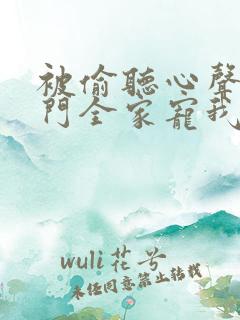 被偷聽心聲
門全家寵我
wuli花兮
未經同意禁止轉載